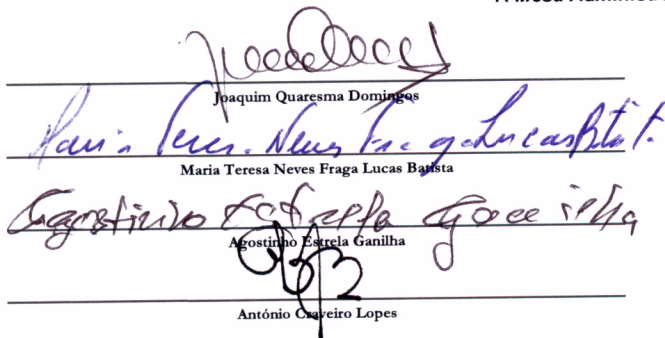 A Mesa Administ
Joaquim Quaresma Domingos
Maria Teresa Neves Fraga Lucas Batista
Maria Teresa Neves Fraga Lucas Batista
Agostinho Estrela Ganilha
Agostinho Estrela Ganilha
António Craveiro Lopes